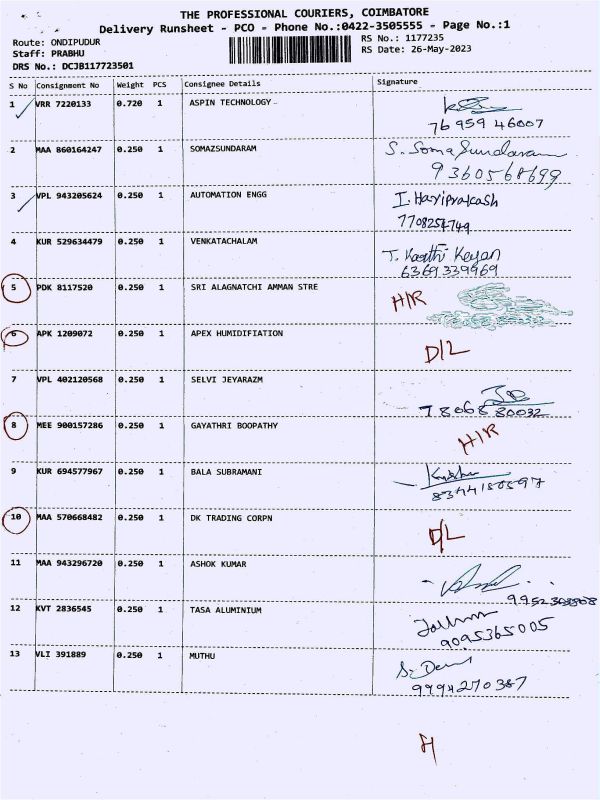 THE PROFESSIONAL COURIERS, COIMBATORE
Delivery Runsheet - PCO - Phone No.:0422-3505555 - Page No.:1
Route: ONDIPUDUR
Staff: PRABHU
DRS No.: DCJB117723501
RS No.: 1177235
RS Date: 26-May-2023
S No Consignment No Weight PCS Consignee Details Signature
1 VRR 7220133 0.720 1 ASPIN TECHNOLOGY
76959 46007
2 MAA 860164247 0.250 1 SOMAZSUNDARAM S. Soma Sundaram
9360568699
3 VPL 943205624 0.250 1 AUTOMATION ENGG I. Hariprakash
7708254749
4 KUR 529634479 0.250 1 VENKATACHALAM T. Kaathi Keyan
6369339969
5 PDK 8117520 0.250 1 SRI ALAGNATCHI AMMAN STRE H/R
6 APK 1209072 0.250 1 APEX HUMIDIFIATION D/L
7 VPL 402120568 0.250 1 SELVI JEYARAZM
78068 80032
8 MEE 900157286 0.250 1 GAYATHRI BOOPATHY H/R
9 KUR 694577967 0.250 1 BALA SUBRAMANI
8344150597
10 MAA 570668482 0.250 1 DK TRADING CORPN D/L
11 MAA 943296720 0.250 1 ASHOK KUMAR
12 KVT 2836545 0.250 1 TASA ALUMINIUM
9095365005
13 VLI 391889 0.250 1 MUTHU
9994270387